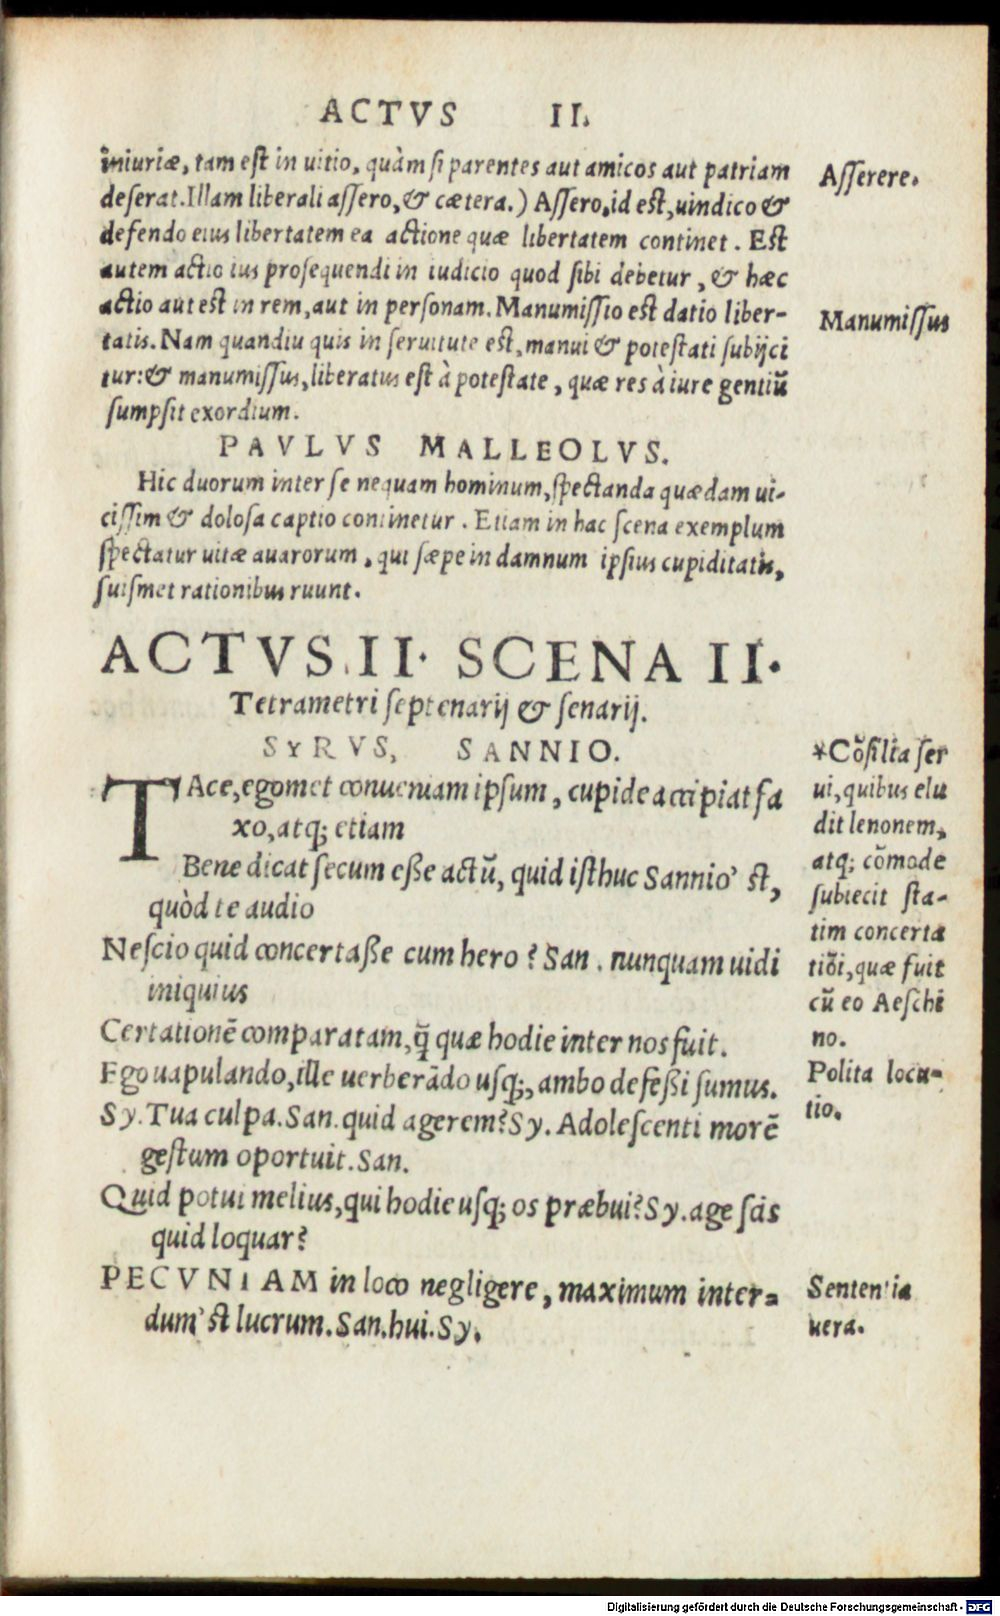 ACTVS II.
iniuriæ, tam est in uitio, quàm si parentes aut amicos aut patriam
deserat. Illam liberali assero, & cætera.) Assero, id est, uindico &
defendo eius libertatem ea actione quæ libertatem continet. Est
autem actio ius prosequendi in iudicio quod sibi debetur, & hæc
actio aut est in rem, aut in personam. Manumissio est datio liber-
tatis. Nam quandiu quis in seruitute est, manui & potestati subijci
tur: & manumissus, liberatus est à potestate, quæ res à iure gentiū
sumpsit exordium.
Asserere.
Manumissus
PAVLVS MALLEOLVS.
Hic duorum inter se nequam hominum, spectanda quædam ui-
cissim & dolosa captio continetur. Etiam in hac scena exemplum
spectatur uitæ auarorum, qui sæpe in damnum ipsius cupiditatis,
suismet rationibus ruunt.
ACTVS II. SCENA II.
Tetrametri septenarij & senarij.
SYRVS, SANNIO.
TAce, egomet conueniam ipsum, cupide accipiat fa
xo, atq; etiam
Bene dicat secum eße actū, quid isthuc Sannio' st,
quòd te audio
Nescio quid concertaße cum hero? San. nunquam uidi
iniquius
Certationē comparatam, q̃ quæ hodie inter nos fuit.
Ego uapulando, ille uerberādo usq;, ambo defeßi sumus.
Sy. Tua culpa. San. quid agerem? Sy. Adolescenti morē
gestum oportuit. San.
Quid potui melius, qui hodie usq; os præbui? Sy. age scis
quid loquar?
PECVNIAM in loco negligere, maximum inter-
dum' st lucrum. San. hui. Sy.
*Cōsilia ser
ui, quibus elu
dit lenonem,
atq; cōmode
subiecit sta-
tim concerta
tiōi, quæ fuit
cū eo Aeschi
no.
Polita locu-
tio.
Sententia
uera.
Digitalisierung gefördert durch die Deutsche Forschungsgemeinschaft - DFG